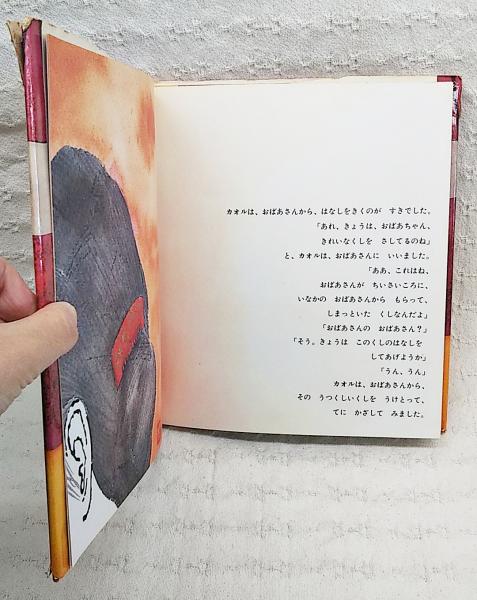 カオルは、おばあさんから、はなしをきくのが　すきでした。
「あれ、きょうは、おばあちゃん、
きれいなくしを　さしてるのね」
と、カオルは、おばあさんに　いいました。
「ああ、これはね、
おばあさんが　ちいさいころに、
いなかの　おばあさんから　もらって、
しまっといた　くしなんだよ」
「おばあさんの　おばあさん？」
「そう。きょうは　このくしのはなしを
してあげようか」
「うん、うん」
カオルは、おばあさんから、
その　うつくしいくしを　うけとって、
てに　かざして　みました。